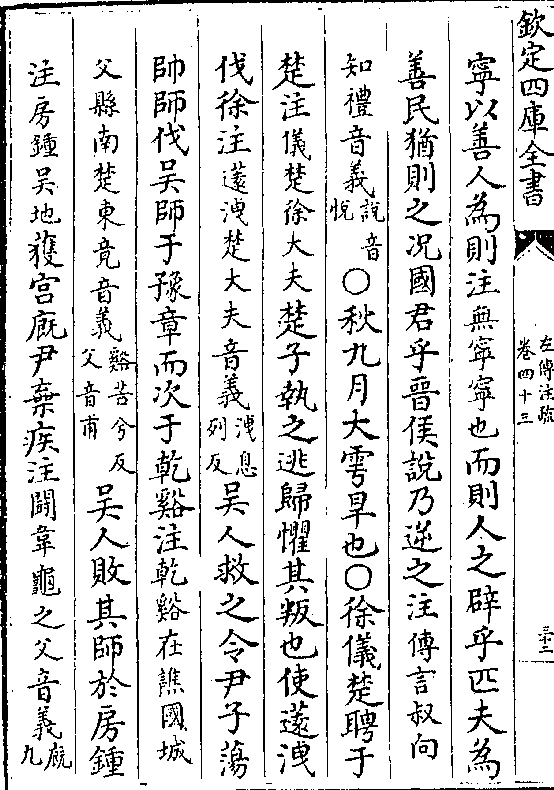 欽定四庫全書
左傳注疏
卷四十三
三十二
寧以善人為則注無寧寧也而則人之辟乎匹夫為
善民猶則之况國君乎晉侯說乃逆之注傳言叔向
知禮音義說音悅○秋九月大雩旱也○徐儀楚聘于
楚注儀楚徐大夫楚子執之逃歸懼其叛也使薳洩
伐徐注薳洩楚大夫音義洩息列反吳人救之令尹子蕩
帥師伐吳師于豫章而次于乾谿注乾谿在譙國城
父縣南楚東竟音義谿苦兮反父音甫吳人敗其師於房鍾
注房鍾吳地獲宫廐尹棄疾注鬬韋龜之父音義廐九